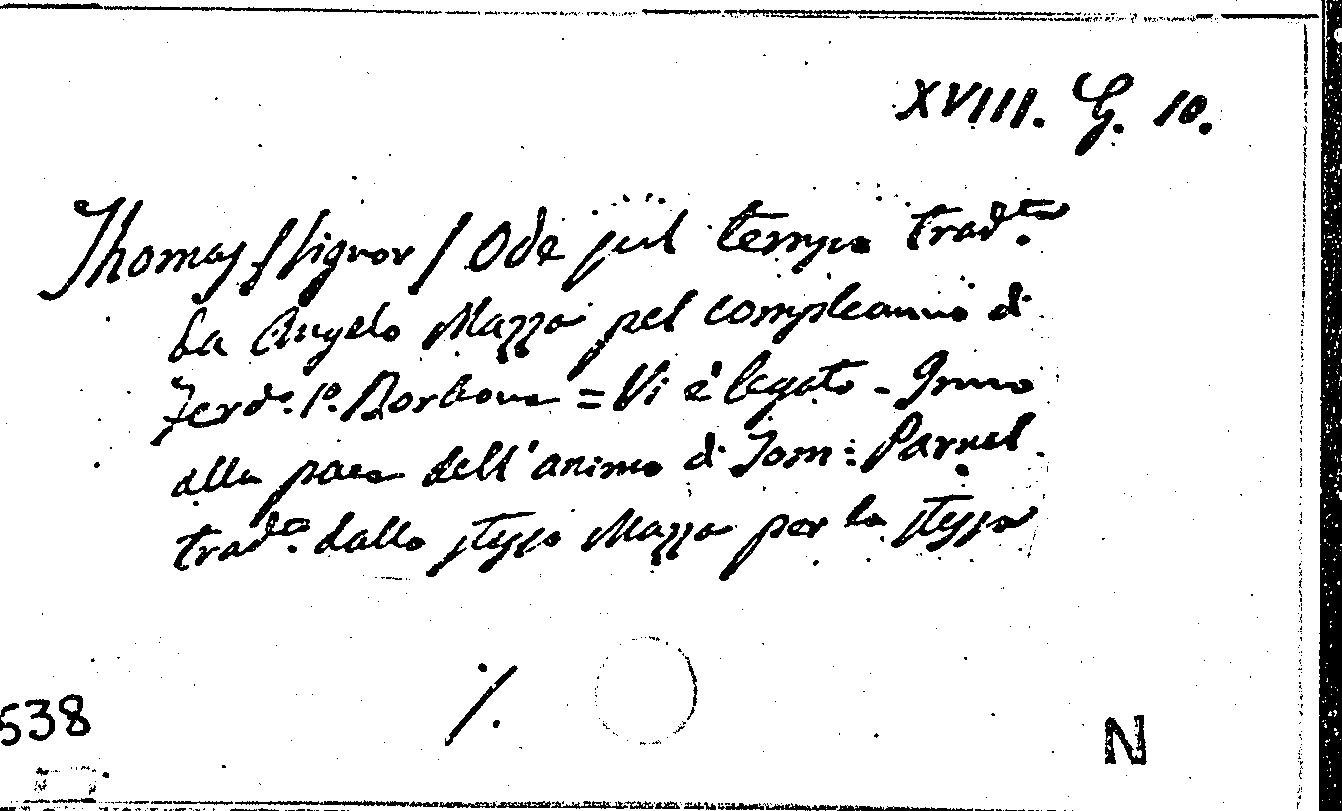 XVIII. G. 10.
Thomas / Signor / Ode sul tempo trad.ta
da Angelo Mazza pel compleanno di
Ferd.o 1.o Borbone = Vi è legato - Inno
alla pace dell'animo di Tom: Parnel
trad.o dallo stesso Mazza per la stessa
./.
538
N